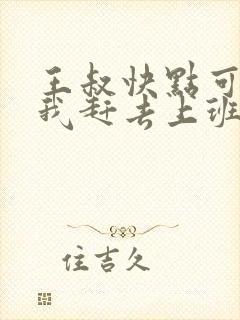 王叔快點可
我赶去上班
住吉久